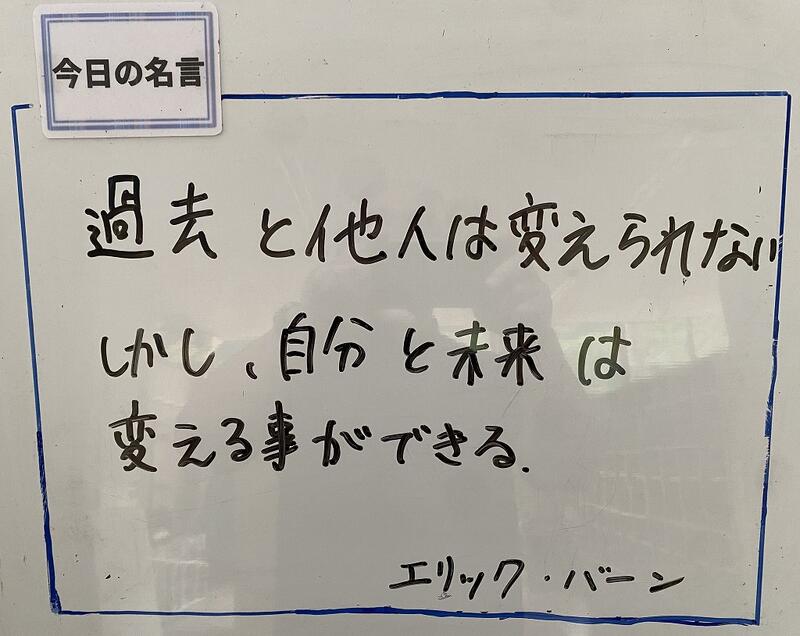 今日の名言
過去と他人は変えられない
しかし、自分と未来は
変える事ができる.
エリック・バーン